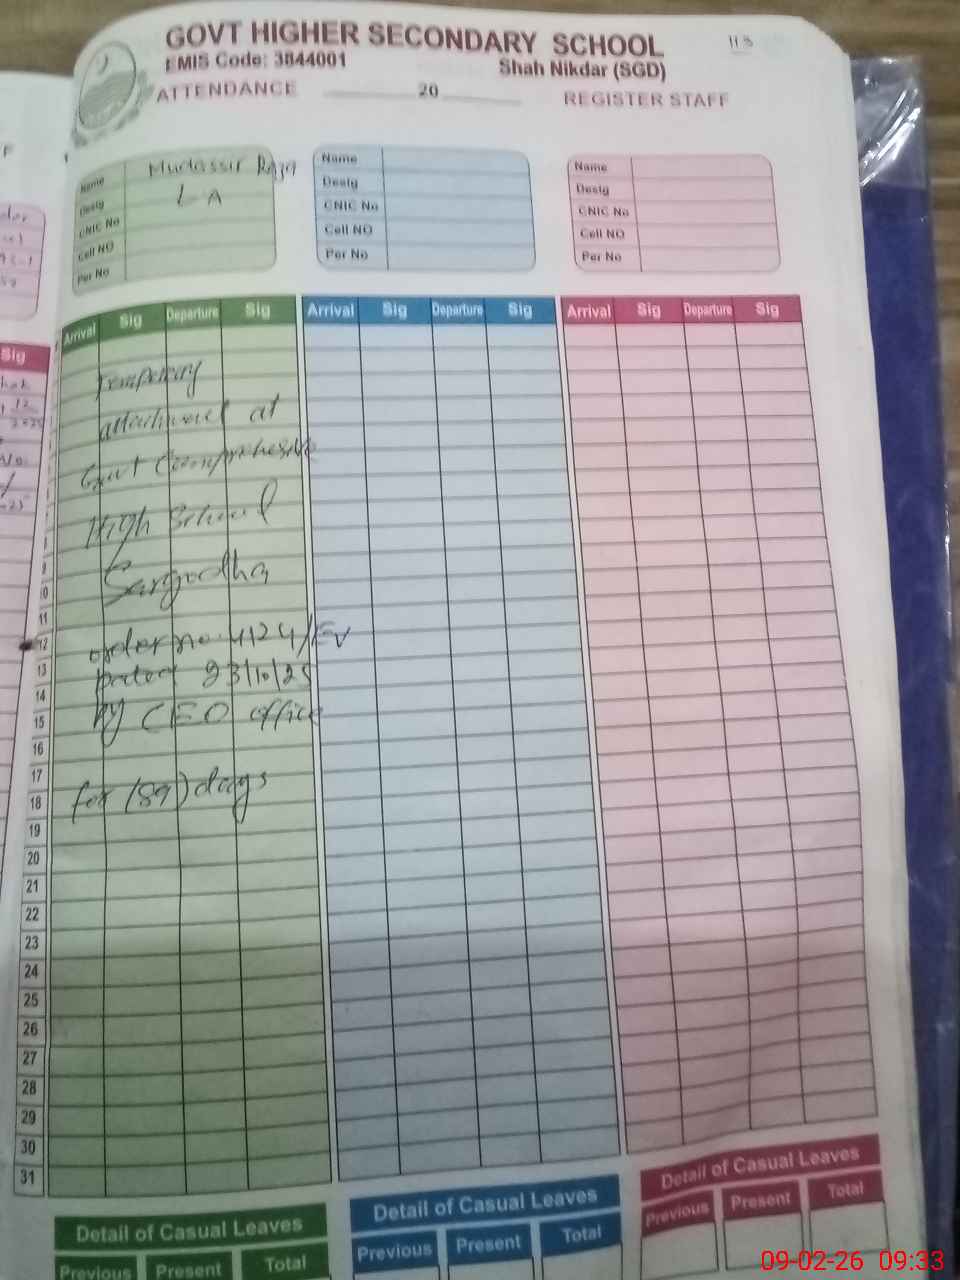 GOVT HIGHER SECONDARY SCHOOL
113
EMIS Code: 3844001
Shah Nikdar (SGD)
ATTENDANCE ________ 20 ________ REGISTER STAFF
Name Mudassir Raza
Desig L-A
CNIC No
Cell NO
Per No
Name
Desig
CNIC No
Cell NO
Per No
Name
Desig
CNIC No
Cell NO
Per No
Arrival Sig Departure Sig Arrival Sig Departure Sig Arrival Sig Departure Sig
Sig
Temporary
attachment at
Govt Comprehesive
High School
Sargodha
order no. 4124/EV
Dated 23/10/25
by CEO office
for (89) days
9
10
11
12
13
14
15
16
17
18
19
20
21
22
23
24
25
26
27
28
29
30
31
Detail of Casual Leaves
Previous Present Total
Detail of Casual Leaves
Previous Present Total
Detail of Casual Leaves
Previous Present Total
09-02-26 09:33